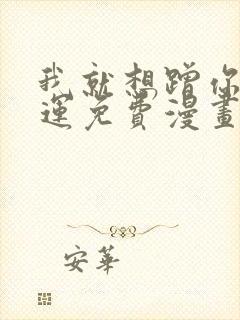 我就想蹭你
運免費漫畫
安華